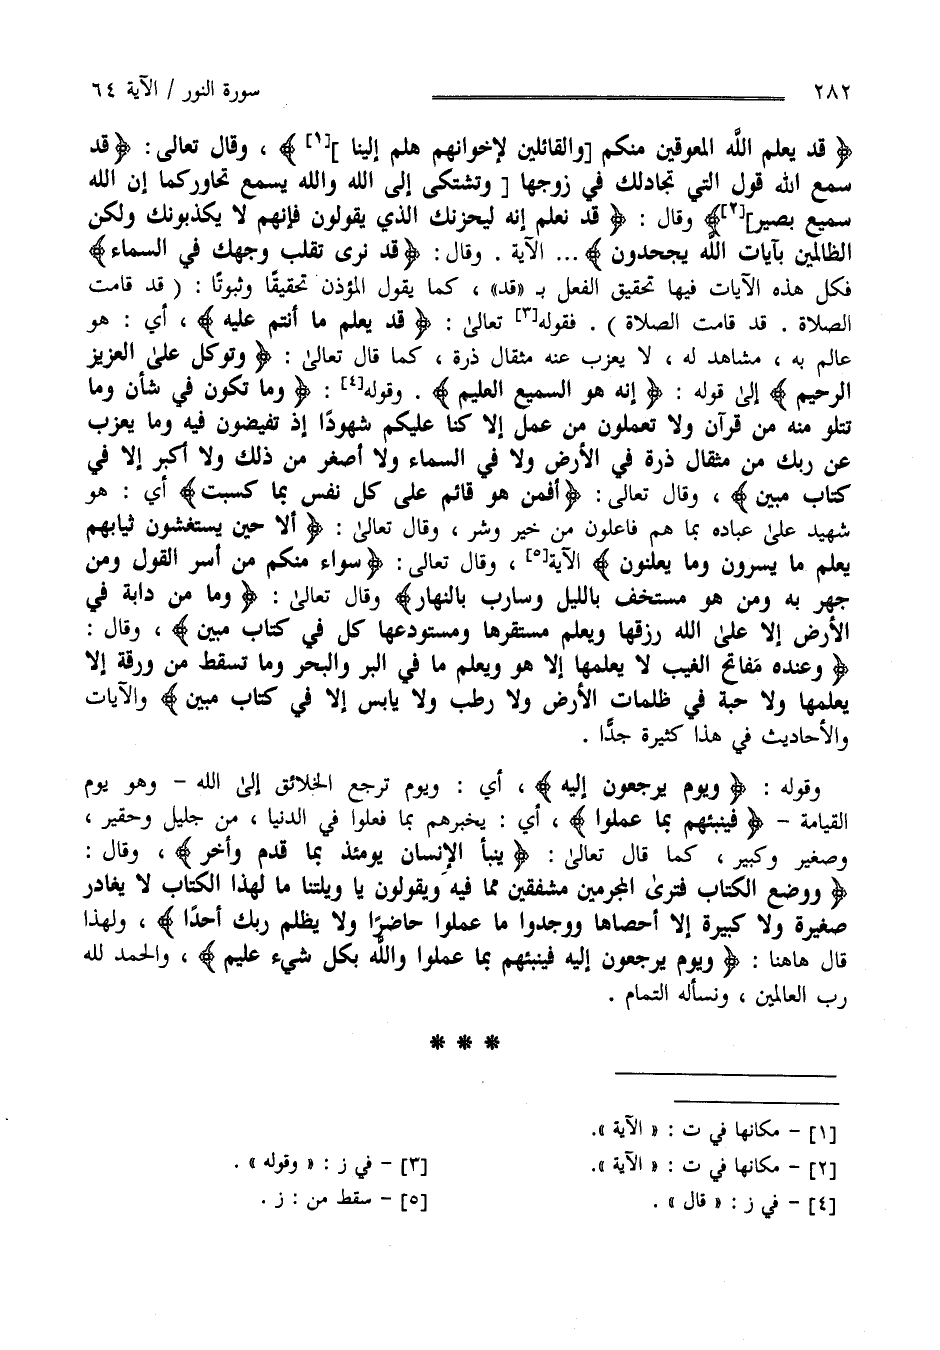 ٢٨٢ سورة النور / الآية ٦٤
﴿ قد يعلم اللَّه المعوقين منكم [والقائلين لإخوانهم هلم إلينا ][١] ﴾ ، وقال تعالى : ﴿ قد
سمع الله قول التي تجادلك في زوجها [ وتشتكى إلى الله والله يسمع تحاوركما إن الله
سميع بصير][٢]﴾ وقال : ﴿ قد نعلم إنه ليحزنك الذي يقولون فإنهم لا يكذبونك ولكن
الظالمين بآيات اللَّه يجحدون ﴾... الآية . وقال: ﴿قد نرى تقلب وجهك في السماء﴾
فكل هذه الآيات فيها تحقيق الفعل بـ «قد» ، كما يقول المؤذن تحقيقًا وثبوتًا : ( قد قامت
الصلاة . قد قامت الصلاة ) . فقوله[٣] تعالىٰ : ﴿ قد يعلم ما أنتم عليه ﴾ ، أي : هو
عالم به ، مشاهد له ، لا يعزب عنه مثقال ذرة ، كما قال تعالىٰ : ﴿ وتوكل علىٰ العزيز
الرحيم ﴾ إلىٰ قوله : ﴿ إنه هو السميع العليم ﴾ . وقوله[٤] : ﴿ وما تكون في شأن وما
تتلو منه من قرآن ولا تعملون من عمل إلا كنا عليكم شهودًا إذ تفيضون فيه وما يعزب
عن ربك من مثقال ذرة في الأرض ولا في السماء ولا أصغر من ذلك ولا أكبر إلا في
كتاب مبين ﴾ ، وقال تعالى : ﴿أفمن هو قائم على كل نفس بما كسبت﴾ أي : هو
شهيد علىٰ عباده بما هم فاعلون من خير وشر ، وقال تعالىٰ : ﴿ ألا حين يستغشون ثيابهم
يعلم ما يسرون وما يعلنون ﴾ الآية[٥] ، وقال تعالى : ﴿سواء منكم من أسر القول ومن
جهر به ومن هو مستخف بالليل وسارب بالنهار﴾ وقال تعالىٰ : ﴿ وما من دابة في
الأرض إلا علىٰ الله رزقها ويعلم مستقرها ومستودعها كل في كتاب مبين ﴾ ، وقال :
﴿ وعنده مَفاتح الغيب لا يعلمها إلا هو ويعلم ما في البر والبحر وما تسقط من ورقة إلا
يعلمها ولا حبة في ظلمات الأرض ولا رطب ولا يابس إلا في كتاب مبين ﴾ والآيات
والأحاديث في هذا كثيرة جدًّا .
وقوله : ﴿ ويوم يرجعون إليه ﴾ ، أي : ويوم ترجع الخلائق إلىٰ الله – وهو يوم
القيامة – ﴿ فينبئهم بما عملوا ﴾ ، أي : يخبرهم بما فعلوا في الدنيا ، من جليل وحقير ،
وصغير وكبير ، كما قال تعالىٰ : ﴿ ينبأ الإنسان يومئذ بما قدم وأخر ﴾ ، وقال :
﴿ ووضع الكتاب فترىٰ المجرمين مشفقين مما فيه ويقولون يا ويلتنا ما لهذا الكتاب لا يغادر
صغيرة ولا كبيرة إلا أحصاها ووجدوا ما عملوا حاضرًا ولا يظلم ربك أحدًا ﴾ ، ولهذا
قال هاهنا : ﴿ ويوم يرجعون إليه فينبئهم بما عملوا واللَّه بكل شيء عليم ﴾ ، والحمد لله
رب العالمين ، ونسأله التمام .
* * *
[١] – مكانها في ت : « الآية ».
[٢] – مكانها في ت : « الآية ». [٣] – في ز : « وقوله » .
[٤] – في ز : « قال » . [٥] – سقط من : ز .